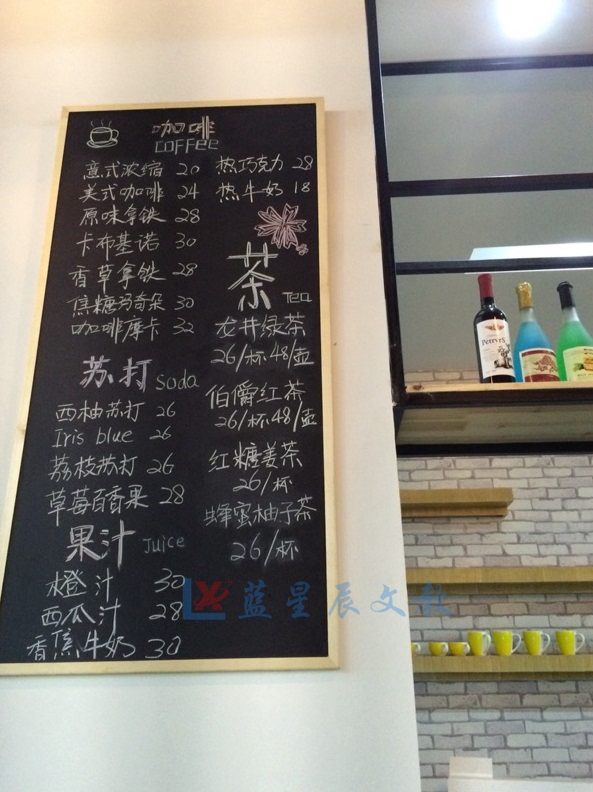 咖啡
coffee
意式浓缩 20
美式咖啡 24
原味拿铁 28
卡布基诺 30
香草拿铁 28
焦糖玛奇朵 30
咖啡摩卡 32
热巧克力 28
热牛奶 18
苏打 Soda
西柚苏打 26
Iris blue 26
荔枝苏打 26
草莓百香果 28
果汁 Juice
橙汁 30
西瓜汁 28
香蕉牛奶 30
茶 Tea
龙井绿茶
26/杯 48/壶
伯爵红茶
26/杯 48/壶
红糖姜茶
26/杯
蜂蜜柚子茶
26/杯
蓝星辰文教